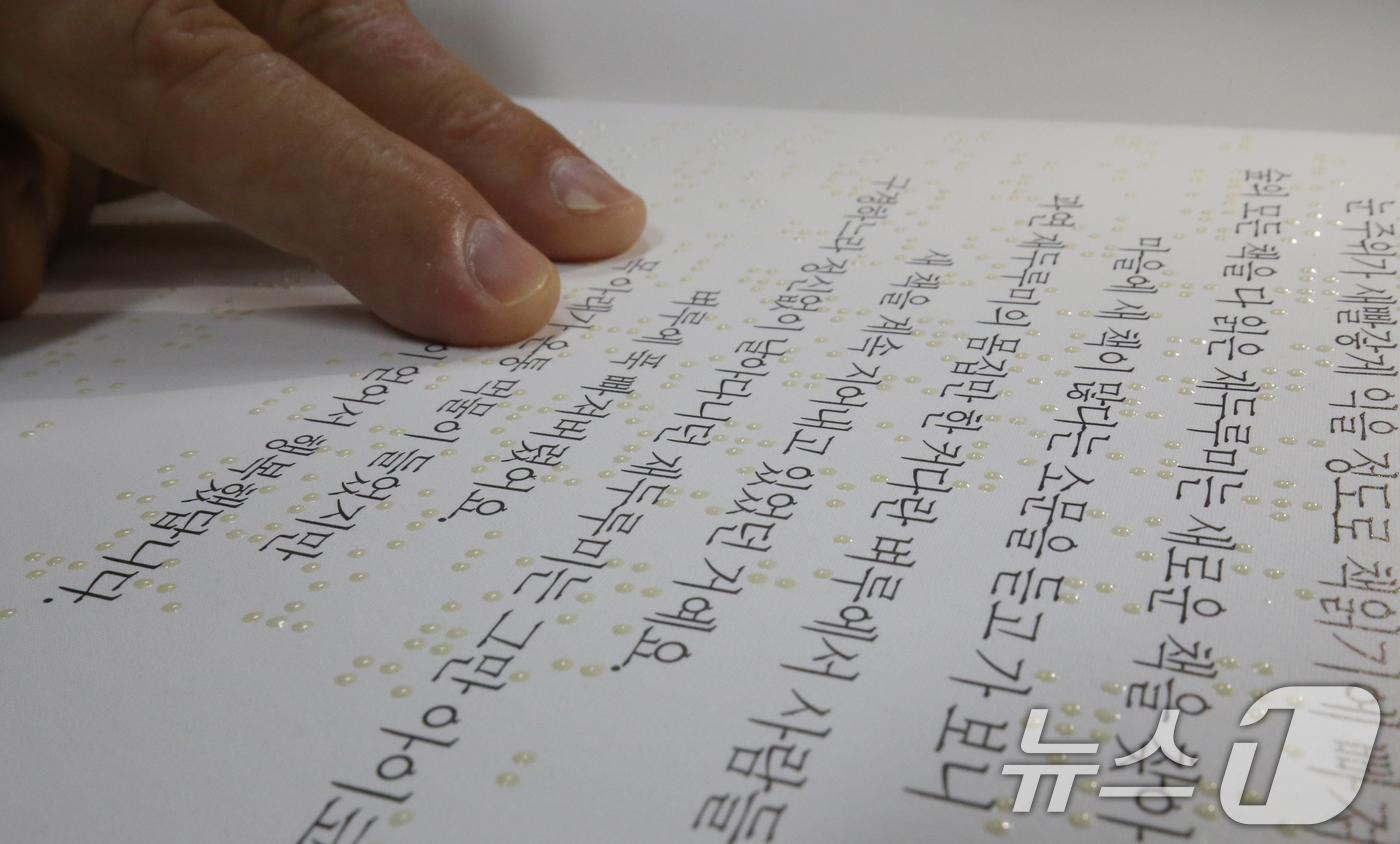 눈 주위가 새빨갛게 익을 정도로 책읽기에 빠져
숲의 모든 책을 다 읽은 재두루미는 새로운 책을 찾아
마을에 새 책이 많다는 소문을 듣고 가 보니
과연 재두루미의 몸집만 한 커다란 벼루에서 사람들
새 책을 계속 지어내고 있었던 거예요.
구경하느라 정신없이 날아다니던 재두루미는 그만 아이코
벼루에 폭 빠져버렸어요.
목 아래가 온통 먹물이 들었지만
얻어서 행복했답니다.
뉴스1